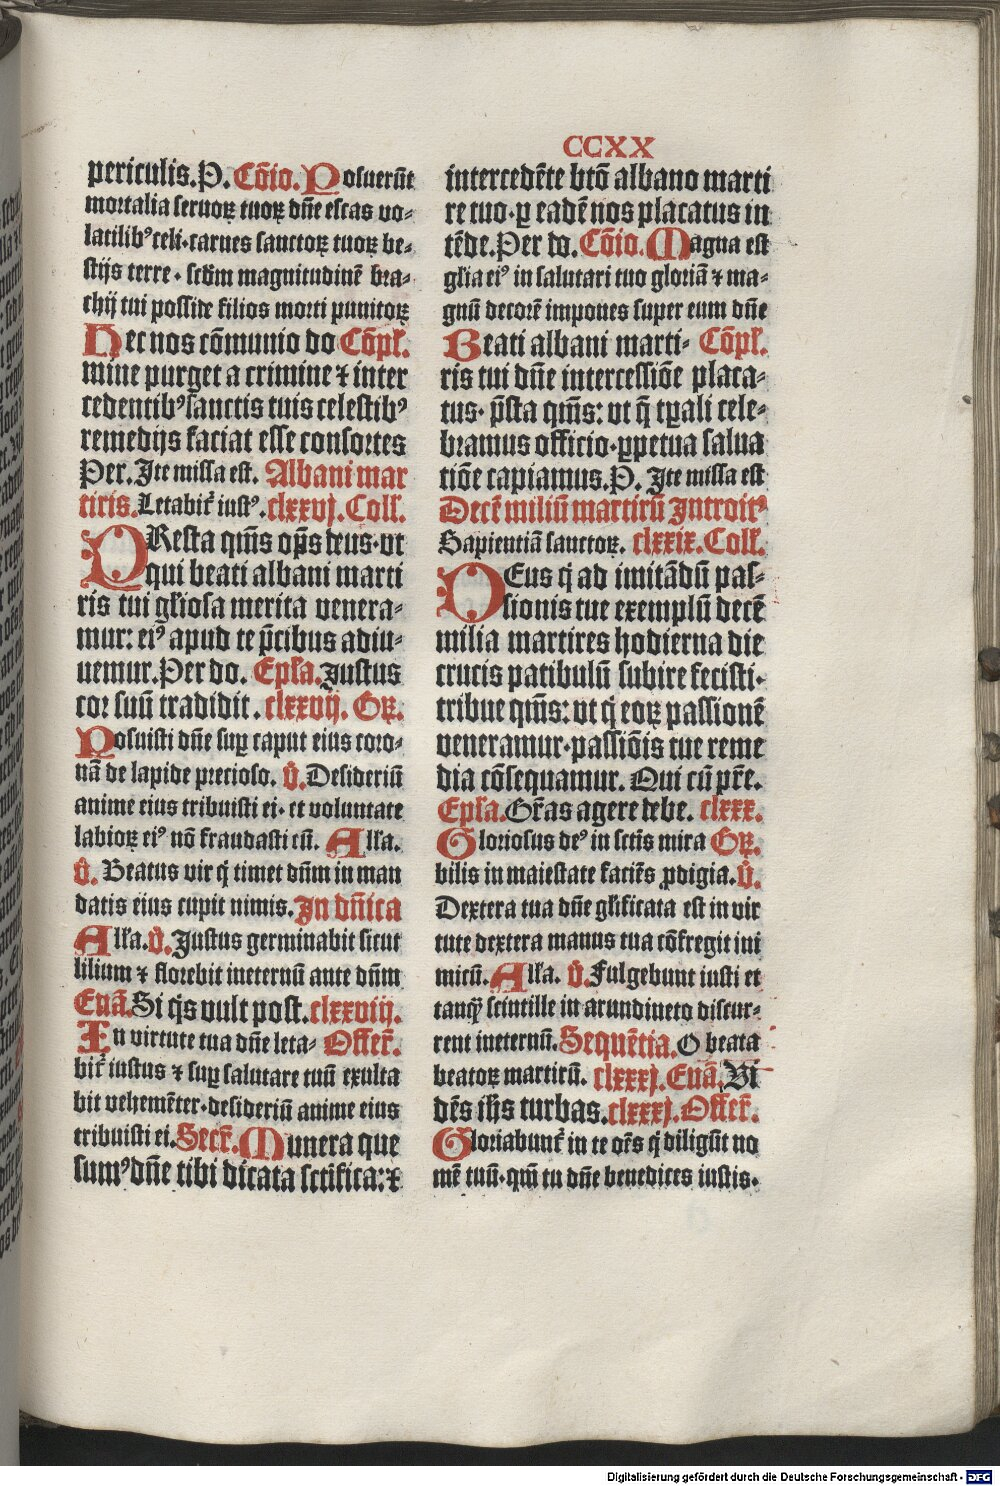 CCXX
periculis. P. Cōio. Posuerūt
mortalia seruoꝝ tuoꝝ dñe escas vo-
latilibꝰ celi. carnes sanctoꝝ tuoꝝ be-
stijs terre. sedm magnitudinē bra-
chij tui posside filios morti punitoꝝ
Hec nos cōmunio do Cōpł.
mine purget a crimine ⁊ inter
cedentibꝰ sanctis tuis celestibꝰ
remedijs faciat esse consortes
Per. Jte missa est. Albani mar
tiris. Letabit᷑ iustꝰ. clxxvj. Coll.
PResta qm̄s op̄s deus. vt
qui beati albani marti
ris tui gl̄iosa merita venera-
mur: eiꝰ apud te p̄cibus adiu-
uemur. Per do. Epl̄a. Justus
cor suū tradidit. clxxvij. Gꝝ.
Posuisti dñe suꝑ caput eius coro-
nā de lapide precioso. ℣. Desideriū
anime eius tribuisti ei. et voluntate
labioꝝ eiꝰ nō fraudasti eū. All̄a.
℣. Beatus vir q̇ timet dn̄m in man
datis eius cupit nimis. Jn dn̄ica
All̄a. ℣. Justus germinabit sicut
lilium ⁊ florebit ineternū ante dn̄m
Euā. Si q̇s vult post. clxxviij.
In virtute tua dñe leta- Offer̄.
bit᷑ iustus ⁊ suꝑ salutare tuū exulta
bit vehemēter. desideriū anime eius
tribuisti ei. Secr̄. Munera que
sumꝰ dñe tibi dicata sc̄tifica: ⁊
intercedēte btō albano marti
re tuo. ꝑ eadē nos placatus in
tēde. Per do. Cōio. Magna est
gl̄ia eiꝰ in salutari tuo gloriā ⁊ ma-
gnū decorē impones super eum dñe
Beati albani marti- Cōpł.
ris tui dñe intercessiōe placa-
tus. p̄sta qm̄s: vt q̄ tꝑali cele-
bramus officio. ꝑpetua salua
tiōe capiamus. P. Jte missa est
Decē miliū martirū Jntroitꝰ
Sapientiā sanctoꝝ. clxxix. Coll.
DEus q̇ ad imitādū pas-
sionis tue exemplū decē
milia martires hodierna die
crucis patibulū subire fecisti.
tribue qm̄s: vt q̇ eoꝝ passionē
veneramur. passiōis tue reme
dia cōsequamur. Qui cū pr̄e.
Epl̄a. Gr̄as agere debe. clxxx.
Gloriosus deꝰ in sctīs mira Gꝝ.
bilis in maiestate faciēs ꝓdigia. ℣.
Dextera tua dñe gl̄ificata est in vir
tute dextera manus tua cōfregit ini
micū. All̄a. ℣. Fulgebunt iusti et
tanq̄ scintille in arundineto discur-
rent ineternū. Sequētia. O beata
beatoꝝ martirū. clxxxj. Euā. Vi
dēs ih̄s turbas. clxxxj. Offer̄.
Gloriabunt᷑ in te oēs q̇ diligūt no
mē tuū. qm̄ tu dñe benedices iustis.
Digitalisierung gefördert durch die Deutsche Forschungsgemeinschaft - DFG